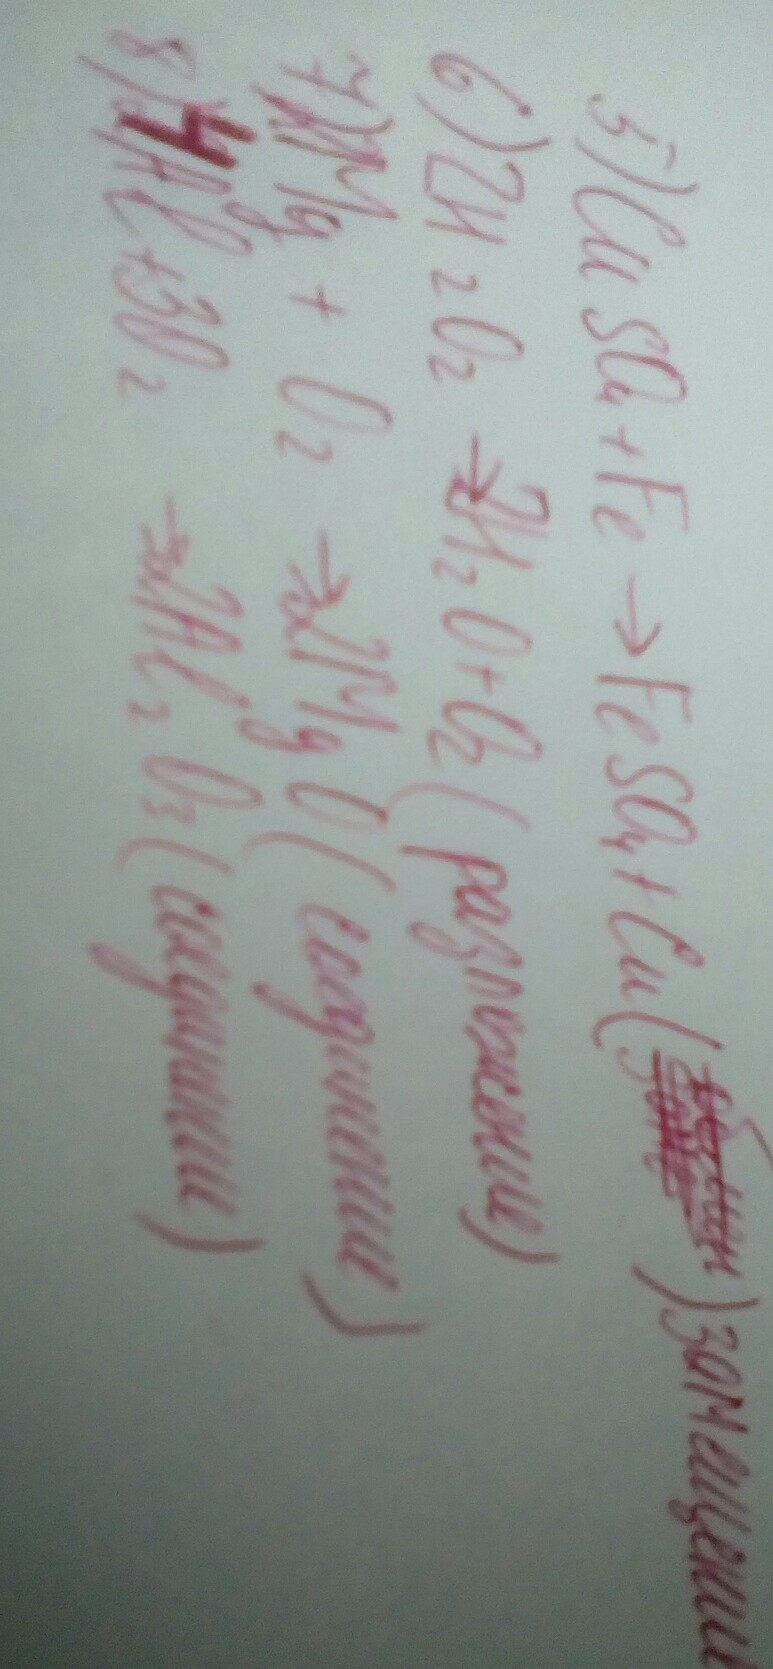 5) CuSO4 + Fe → FeSO4 + Cu ( ) замещени
6) 2H2O2 → 2H2O + O2 (разложение)
7) 2Mg + O2 → 2MgO (соединение)
8) 4Al + 3O2 → 2Al2O3 (соединение)